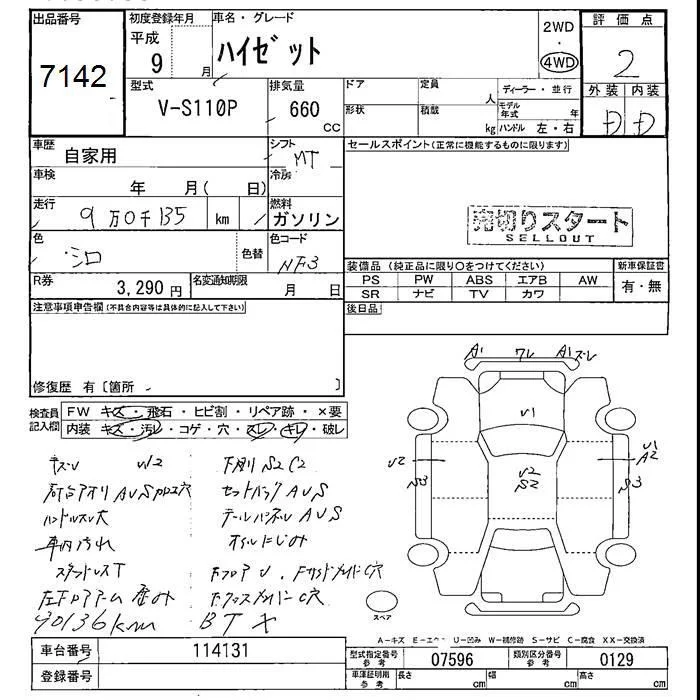 出品番号 初度登録年月 車名・グレード 2WD 評価点
7142 平成 9 月 ハイゼット 4WD 2
型式 排気量 ドア 定員 人 ディーラー・並行 外装 内装
V-S110P 660 CC 形状 積載 kg モデル年式 年 ハンドル 左・右 D D
車歴 自家用 シフト MT セールスポイント(正常に機能するものに限ります)
車検 年 月( 日) 冷房
走行 9万0千135 km 燃料 ガソリン 売切りスタート
SELLOUT
色 シロ 色替 色コード NF3
装備品(純正品に限り○をつけてください) 新車保証書
R券 3,290円 名変通知期限 月 日 PS PW ABS エアB AW 有・無
SR ナビ TV カワ
注意事項申告欄(不具合内容等は具体的に記入して下さい) 後日品
修復歴 有〔箇所 〕
A1 ワレ A1 ズレ
検査員記入欄 FW キズ・飛石・ヒビ割・リペア跡・×要
内装 キズ・汚レ・コゲ・穴・スレ・キレ・破レ
U1
U2 U2 S2 U1 A2
S3 S3
キズU U2 下廻り S2 C2
荷台アオリ AUS 穴 セットバック AUS
ハンドルスレ大 テールパネル AUS
車内汚れ オイルにじみ
スタッドレスT フロア U、Fサイドメンバー C穴
左F ロアアーム F.クロスメンバー C穴
90136km BT X
スペア
A-キズ E-エクボ U-凹み W-補修跡 S-サビ C-腐食 XX-交換済
車台番号 114131 型式指定番号参考 07596 類別区分番号参考 0129
登録番号 車庫証明用参考 長さ cm 幅 cm 高さ cm